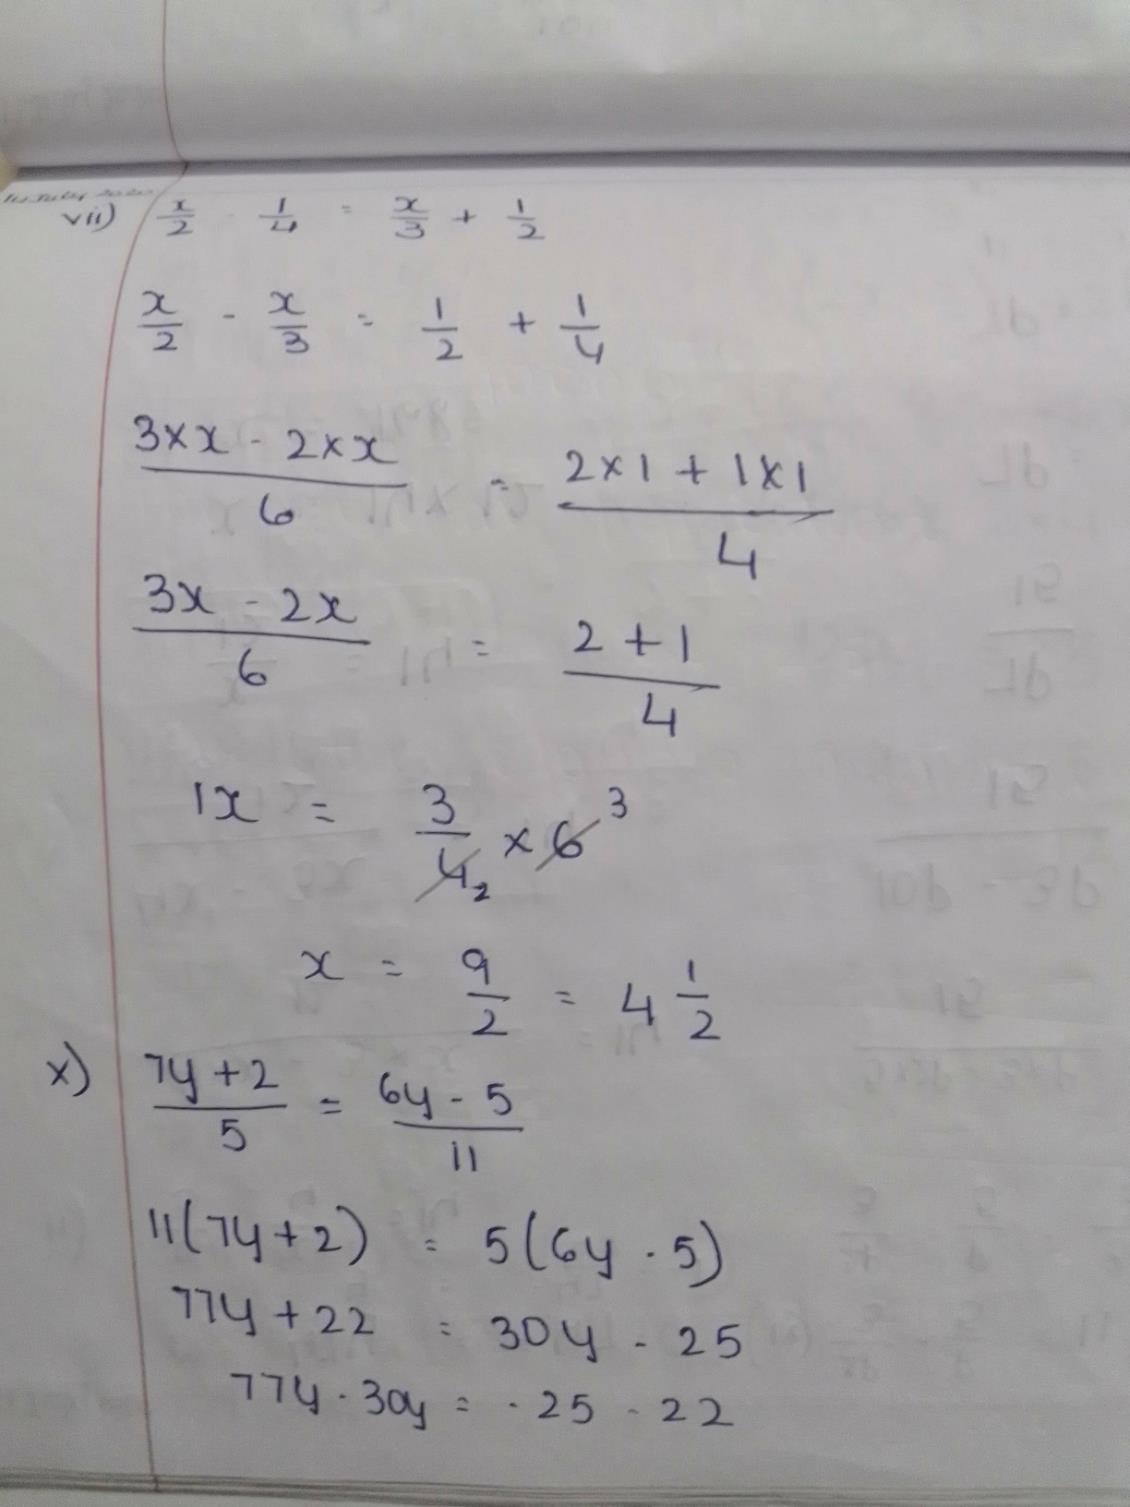 vii) x/2 - 1/4 = x/3 + 1/2
x/2 - x/3 = 1/2 + 1/4
3×x - 2×x / 6 = 2×1 + 1×1 / 4
3x - 2x / 6 = 2 + 1 / 4
1x = 3/4 2 × 6 3
x = 9/2 = 4 1/2
x) 7y + 2 / 5 = 6y - 5 / 11
11(7y + 2) = 5(6y - 5)
77y + 22 = 30y - 25
77y - 30y = -25 - 22